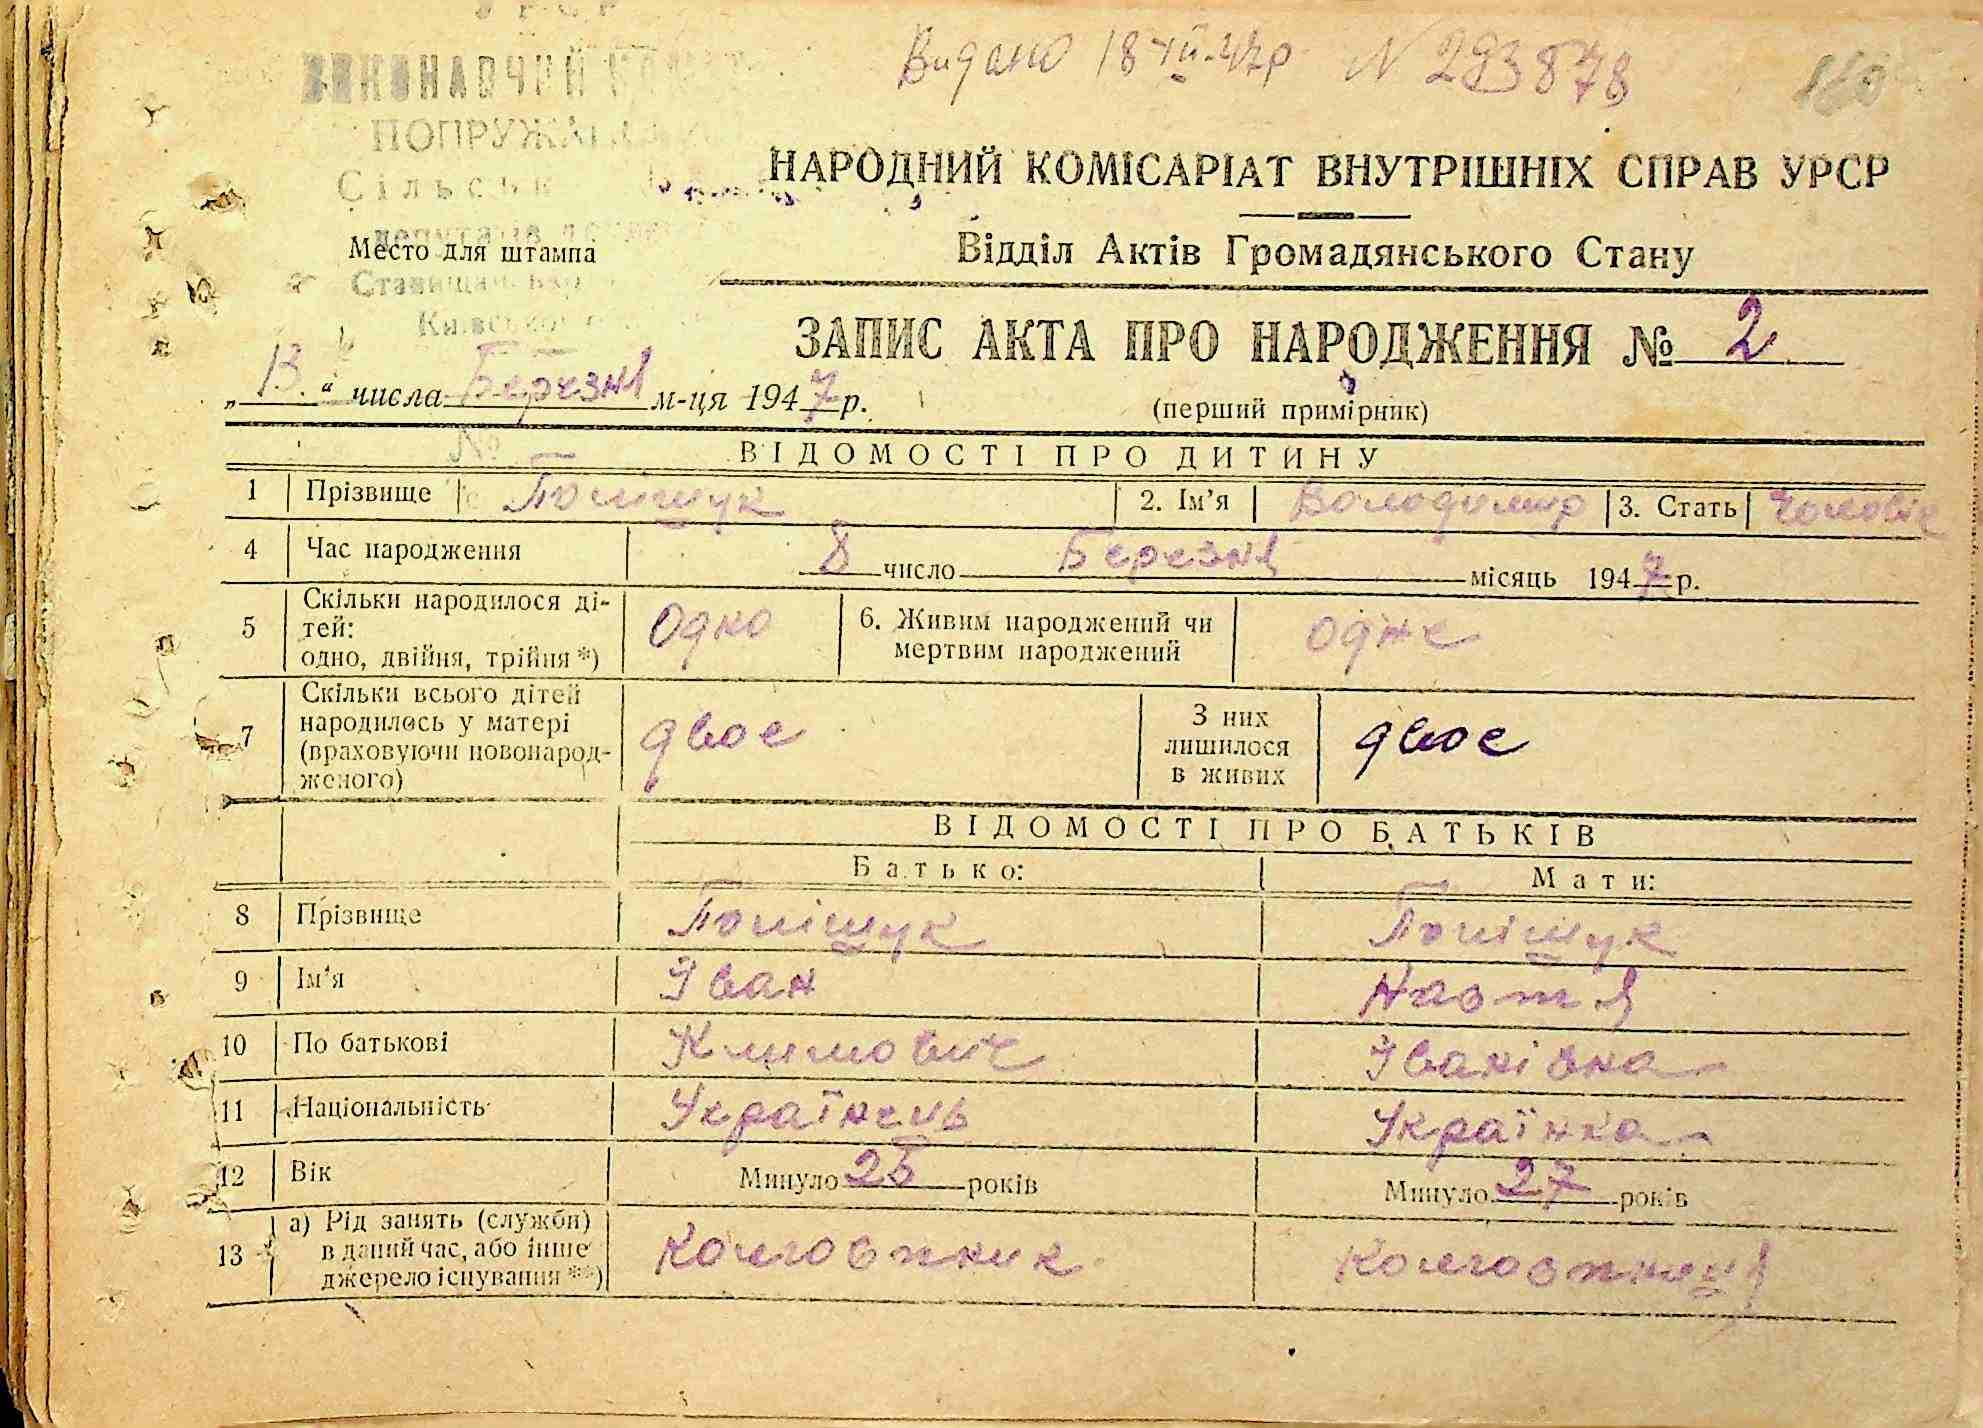 УРСР
ВИКОНАВЧИЙ
Видано 18 VII.47р № 293878
160
ПОПРУЖАН
НАРОДНИЙ КОМІСАРІАТ ВНУТРІШНІХ СПРАВ УРСР
Сільськ
депутатів
Место для штампа
Відділ Актів Громадянського Стану
Ставищан
Київської
ЗАПИС АКТА ПРО НАРОДЖЕННЯ № 2
„13.“ числа Березня м-ця 1947 р.
(перший примірник)
№
ВІДОМОСТІ ПРО ДИТИНУ
1 Прізвище Поліщук 2. Ім'я Володимир 3. Стать Чоловіч
4 Час народження 8 число Березня місяць 1947 р.
5 Скільки народилося ді-
тей:
одно, двійня, трійня *) Одно 6. Живим народжений чи
мертвим народжений одне
7 Скільки всього дітей
народилось у матері
(враховуючи новонарод-
женого) двое З них
лишилося
в живих двое
ВІДОМОСТІ ПРО БАТЬКІВ
Батько: Мати:
8 Прізвище Поліщук Поліщук
9 Ім'я Іван Настя
10 По батькові Климович Іванівна
11 Національність Українець Українка
12 Вік Минуло 25 років Минуло 27 років
13 а) Рід занять (служби)
в даний час, або інше
джерело існування **) Колгоспник Колгоспниця